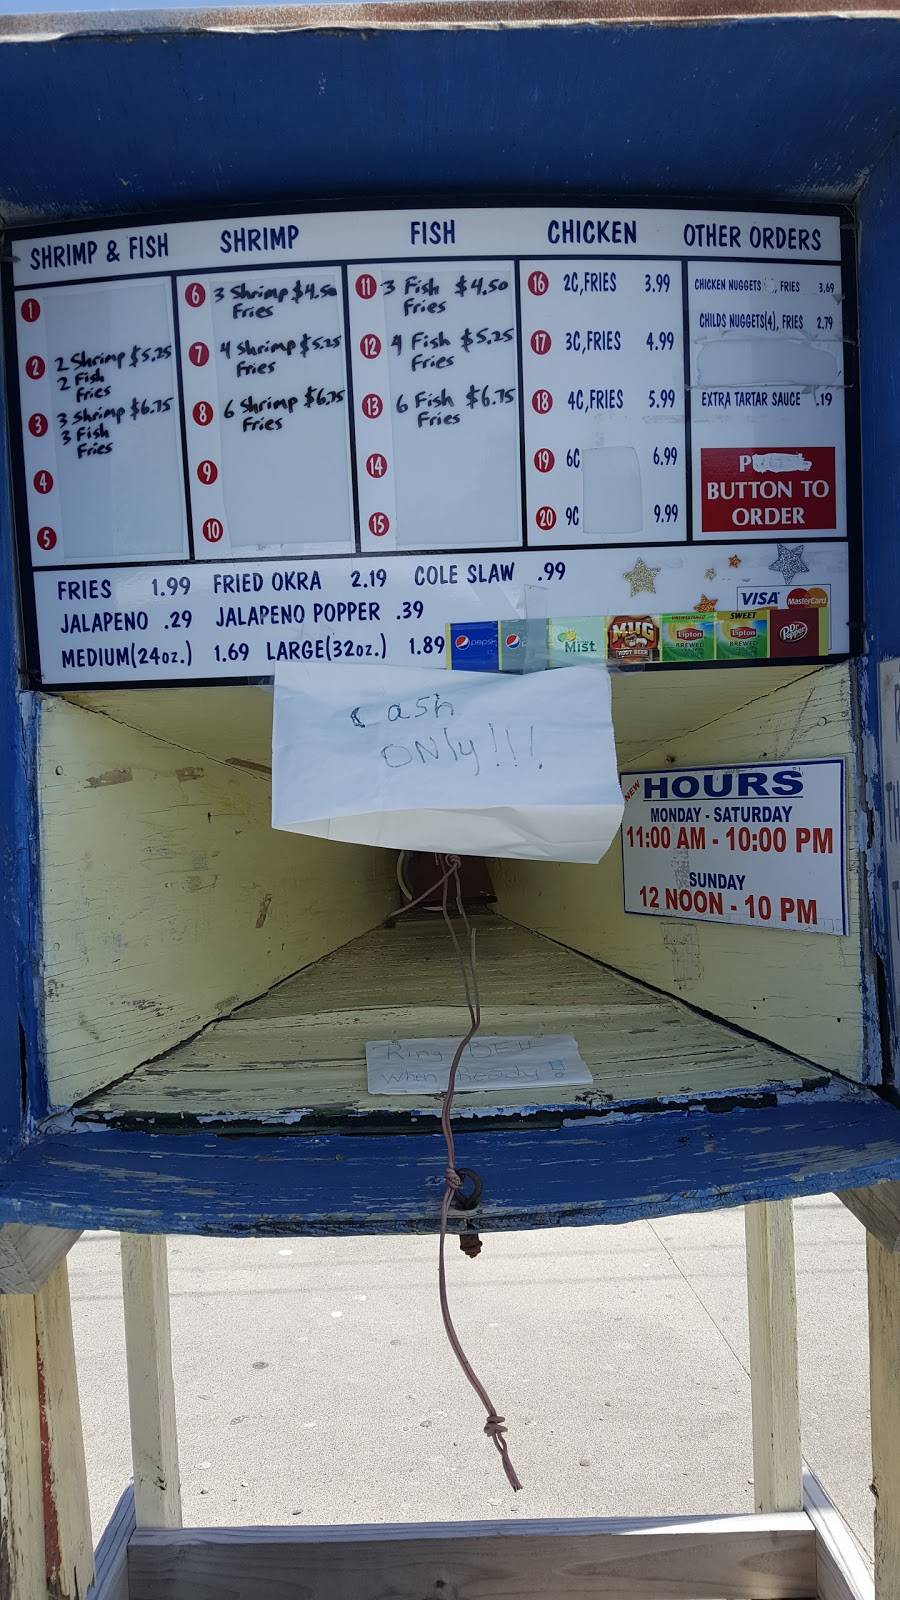 SHRIMP & FISH
SHRIMP
FISH
CHICKEN
OTHER ORDERS
1
2 2 Shrimp $5.25
2 Fish
Fries
3 3 Shrimp $6.75
3 Fish
Fries
4
5
6 3 Shrimp $4.50
Fries
7 4 Shrimp $5.25
Fries
8 6 Shrimp $6.75
Fries
9
10
11 3 Fish $4.50
Fries
12 4 Fish $5.25
Fries
13 6 Fish $6.75
Fries
14
15
16 2C,FRIES 3.99
17 3C,FRIES 4.99
18 4C,FRIES 5.99
19 6C 6.99
20 9C 9.99
CHICKEN NUGGETS , FRIES 3.69
CHILDS NUGGETS(4), FRIES 2.79
EXTRA TARTAR SAUCE .19
BUTTON TO
ORDER
FRIES 1.99 FRIED OKRA 2.19 COLE SLAW .99
JALAPENO .29 JALAPENO POPPER .39
MEDIUM(24oz.) 1.69 LARGE(32oz.) 1.89
VISA MasterCard
pepsi
Mist
MUG
ROOT BEER
UNSWEETENED
Lipton
BREWED
SWEET
Lipton
BREWED
Dr Pepper
Cash
ONly!!!
NEW
HOURS
MONDAY - SATURDAY
11:00 AM - 10:00 PM
SUNDAY
12 NOON - 10 PM
Ring BEll
when ready!